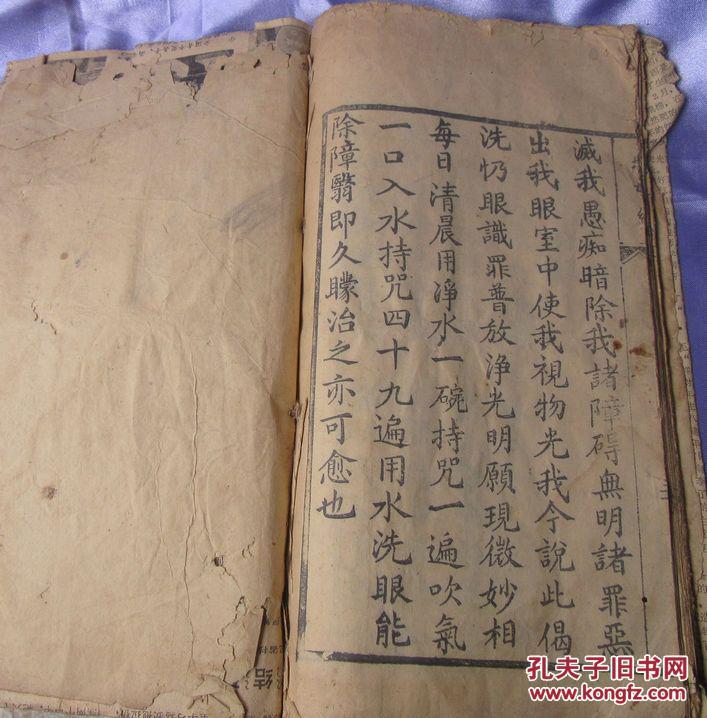 滅我愚痴暗除我諸障碍無明諸罪惡
出我眼室中使我視物光我今說此偈
洗忉眼識罪普放淨光明願現微妙相
每日清晨用淨水一碗持咒一遍吹氣
一口入水持咒四十九遍用水洗眼能
除障翳即久矇治之亦可愈也
孔夫子旧书网
kongfz.com